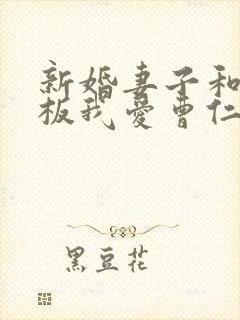 新婚妻子和
板我爱曹仁
黑豆花